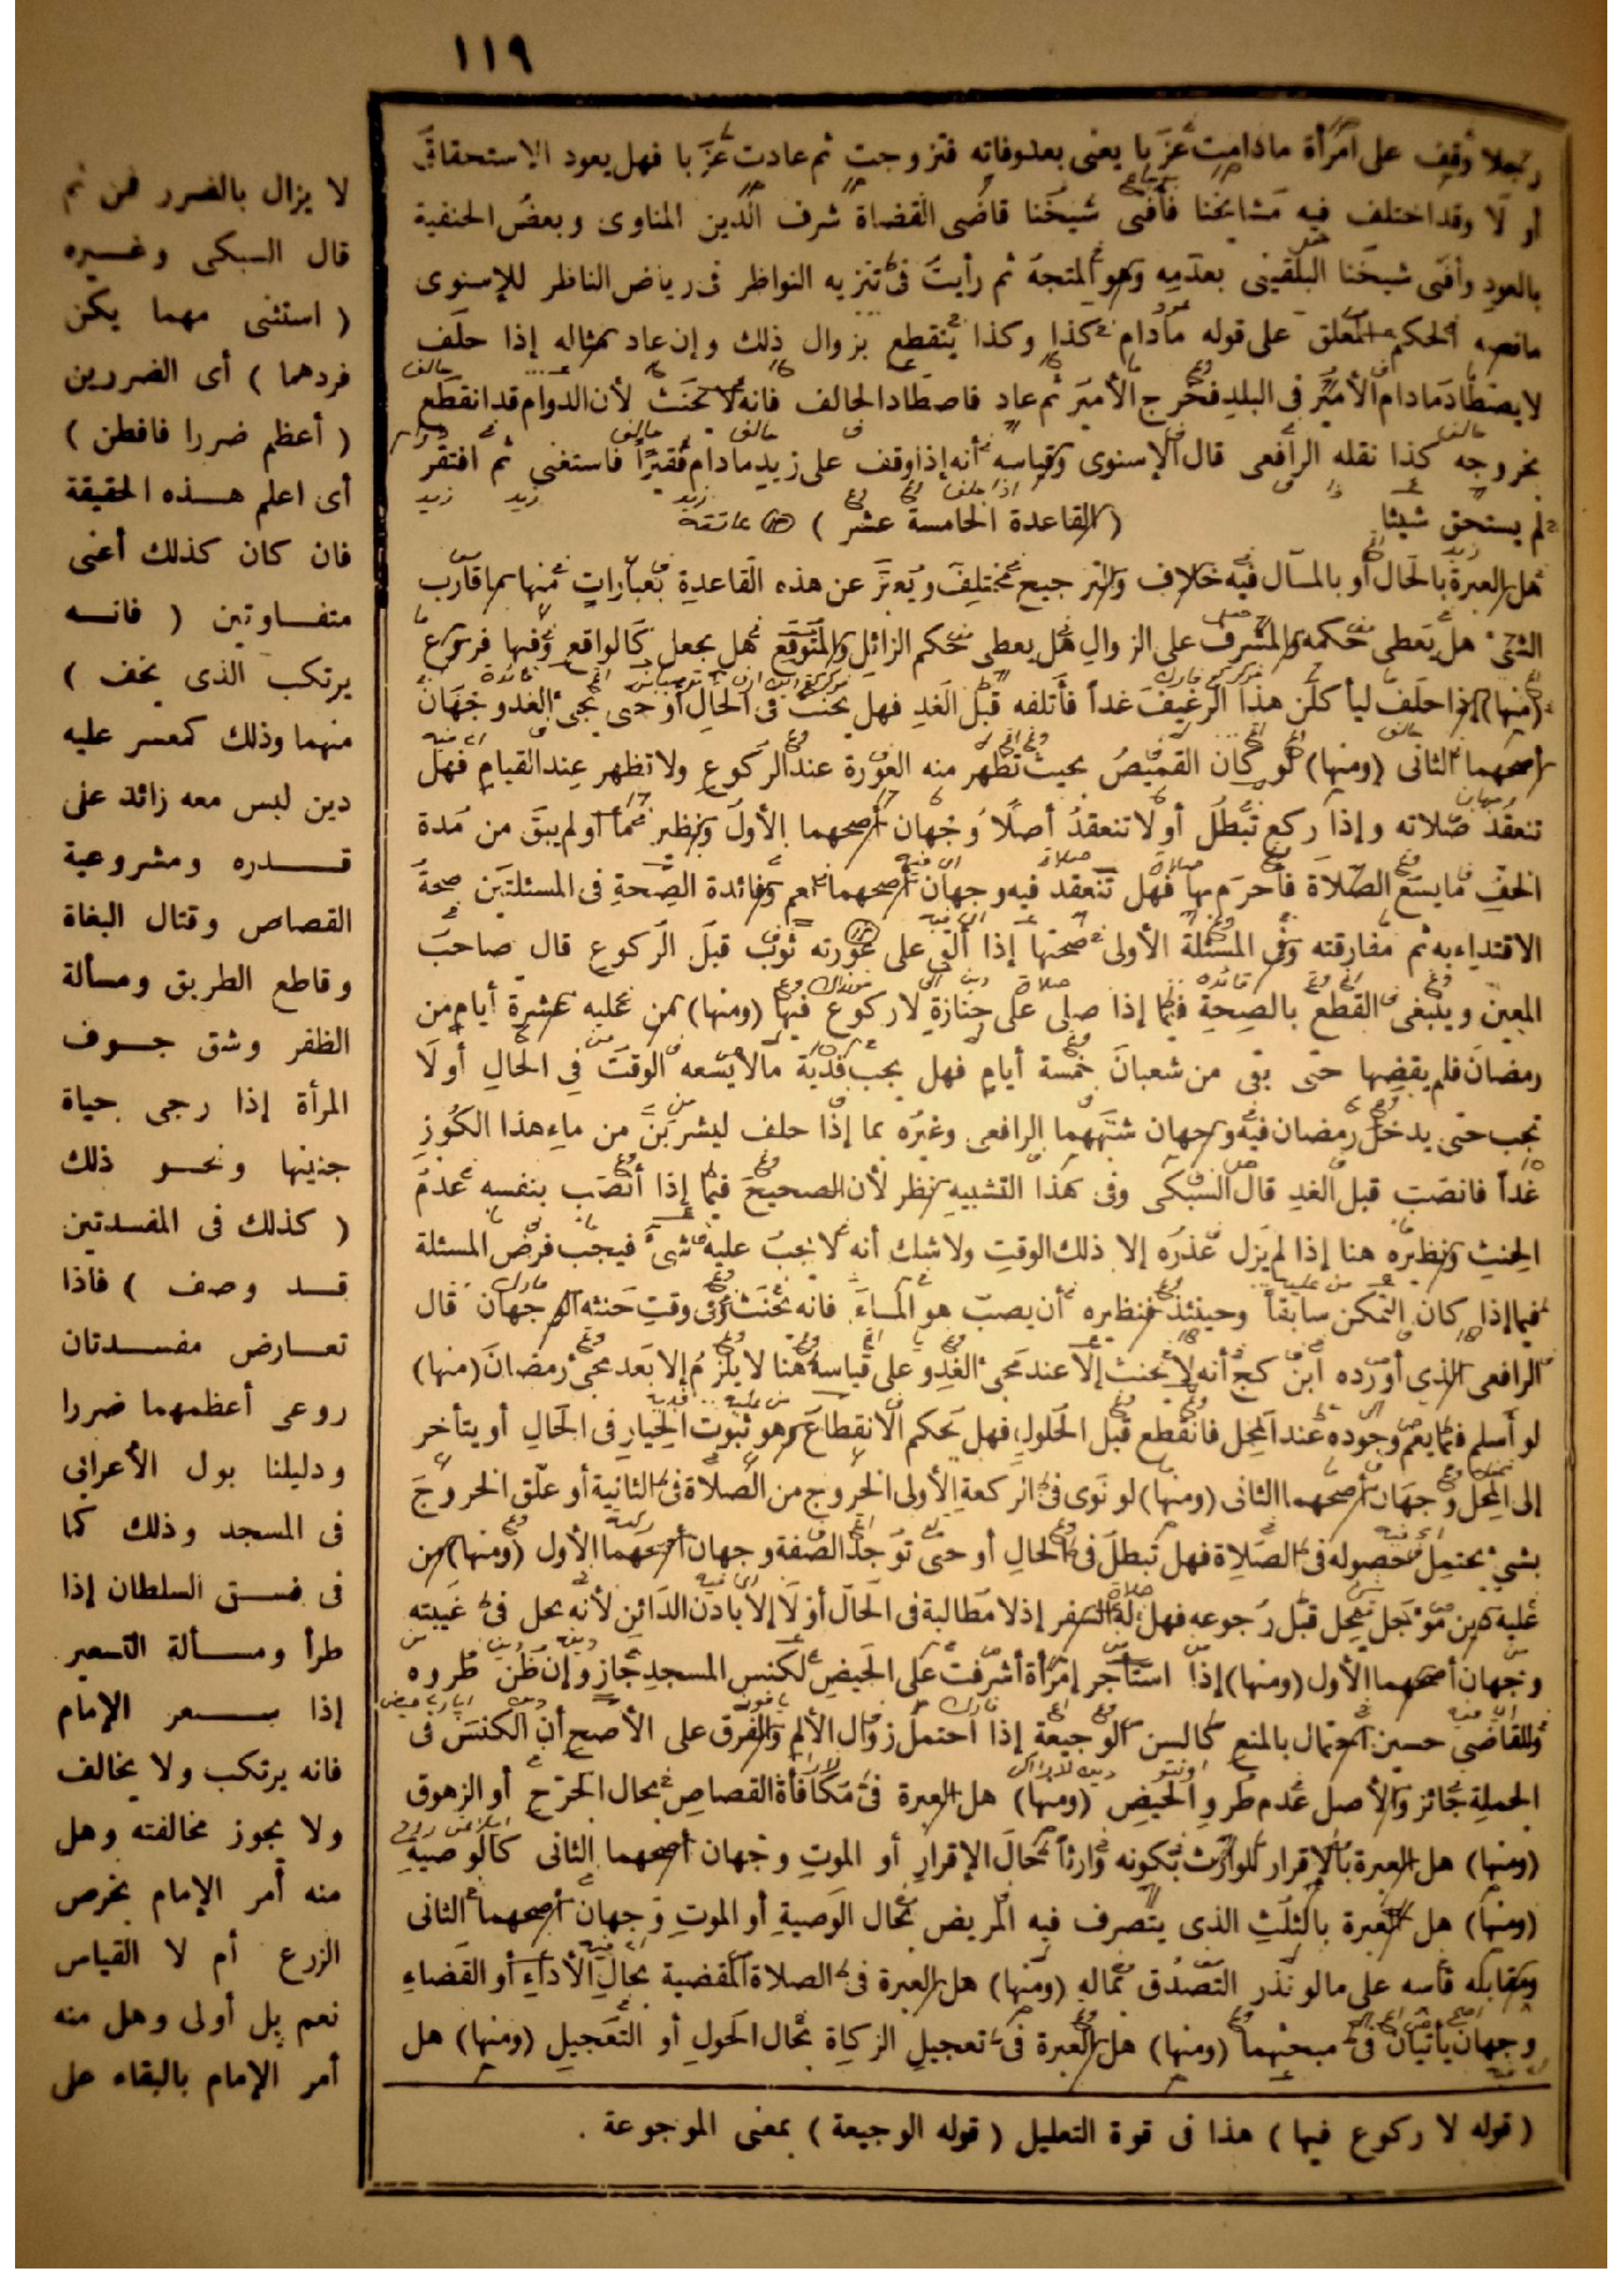 ١١٩
رجلا وقف على امرأة مادامت عزبا يعنى بعد وفاته فتزوجت ثم عادت عزبا فهل يعود الاستحقاق
أو لا وقد اختلف فيه مشايخنا فأفتى شيخنا قاضى القضاة شرف الدين المناوى وبعض الحنفية
بالعود وأفتى شيخنا البلقينى بعدمه وهو المتجه ثم رأيت فى تنزيه النواظر فى رياض الناظر للإسنوى
ما نصه الحكم المعلق على قوله مادام كذا وكذا ينقطع بزوال ذلك وإن عاد مثاله إذا حلف
لا يصطاد مادام الأمير فى البلد فخرج الأمير ثم عاد فاصطاد الحالف فانه لا يحنث لأن الدوام قد انقطع
بخروجه كذا نقله الرافعى قال الإسنوى وقياسه أنه إذا وقف على زيد مادام فقيرا فاستغنى ثم افتقر
لم يستحق شيئا
( القاعدة الخامسة عشر )
هل العبرة بالحال أو بالمآل فيه خلاف والترجيح مختلف ويعبر عن هذه القاعدة بعبارات منها ما قارب
الشئ هل يعطى حكمه والمشرف على الزوال هل يعطى حكم الزائل والمتوقع هل يجعل كالواقع وفيها فروع
(منها) إذا حلف ليأكلن هذا الرغيف غداً فأتلفه قبل الغد فهل يحنث فى الحال أو حتى يجئ الغد وجهان
أصحهما الثانى (ومنها) لو كان القميص بحيث تظهر منه العورة عند الركوع ولا تظهر عند القيام فهل
تنعقد صلاته وإذا ركع تبطل أو لا تنعقد أصلاً وجهان أصحهما الأول ونظيرهما لو لم يبق من مدة
الخف ما يسع الصلاة فأحرم بها فهل تنعقد فيه وجهان أصحهما نعم وفائدة الصحة فى المسئلتين صحة
الاقتداء به ثم مفارقته وفى المسئلة الأولى صحتها إذا ألقى على عورته ثوب قبل الركوع قال صاحب
المعين وينبغى القطع بالصحة فيما إذا صلى على جنازة لا ركوع فيها (ومنها) من عليه عشرة أيام من
رمضان فلم يقضها حتى بقى من شعبان خمسة أيام فهل يجب فدية مالا يسعه الوقت فى الحال أو لا
تجب حتى يدخل رمضان فيه وجهان شبههما الرافعى وغيره بما إذا حلف ليشربن من ماء هذا الكوز
غداً فانصب قبل الغد قال السبكى وفى هذا التشبيه نظر لأن الصحيح فيما إذا انصب بنفسه عدم
الحنث ونظيره هنا إذا لم يزل عذره إلا ذلك الوقت ولا شك أنه لا يجب عليه شئ فيجب فرض المسئلة
فيما إذا كان التمكن سابقاً وحينئذ فنظيره أن يصب هو الماء فانه يحنث وفى وقت حنثه الوجهان قال
الرافعى الذى أورده ابن كج أنه لا يحنث إلا عند مجئ الغد وعلى قياسه هنا لا يلزم إلا بعد مجئ رمضان (منها)
لو أسلم فيما يعم وجوده عند المحل فانقطع قبل الحلول فهل حكم الانقطاع وهو ثبوت الخيار فى الحال أو يتأخر
إلى المحل وجهان أصحهما الثانى (ومنها) لو نوى فى الركعة الأولى الخروج من الصلاة فى الثانية أو علق الخروج
بشئ يحتمل حصوله فى الصلاة فهل تبطل فى الحال أو حتى توجد الصفة وجهان أصحهما الأول (ومنها) من
عليه دين مؤجل يحل قبل رجوعه فهل له السفر إذ لا مطالبة فى الحال أو لا إلا باذن الدائن لأنه يحل فى غيبته
وجهان أصحهما الأول (ومنها) إذا استأجر إمرأة أشرفت على الحيض لكنس المسجد جاز وإن ظن طروه
وللقاضى حسين احتمال بالمنع كالسن الوجيعة إذا احتمل زوال الألم والفرق على الأصح أن الكنس فى
الجملة جائز والأصل عدم طرو الحيض (ومنها) هل العبرة فى مكافأة القصاص بحال الجرح أو الزهوق
(ومنها) هل العبرة بالإقرار للوارث بكونه وارثاً حال الإقرار أو الموت وجهان أصحهما الثانى كالوصية
(ومنها) هل العبرة بالثلث الذى يتصرف فيه المريض بحال الوصية أو الموت وجهان أصحهما الثانى
ومقابله قاسه على ما لو نذر التصدق بماله (ومنها) هل العبرة فى الصلاة المقضية بحال الأداء أو القضاء
وجهان يأتيان فى مبحثهما (ومنها) هل العبرة فى تعجيل الزكاة بحال الحول أو التعجيل (ومنها) هل
( قوله لا ركوع فيها ) هذا فى قوة التعليل ( قوله الوجيعة ) بمعنى الموجوعة .
لا يزال بالضرر فمن ثم
قال السبكى وغيره
( استثنى مهما يكن
فردهما ) أى الضررين
( أعظم ضررا فافطن )
أى اعلم هذه الحقيقة
فان كان كذلك أعنى
متفاوتين ( فانه
يرتكب الذى يخف )
منهما وذلك كمعسر عليه
دين ليس معه زائد على
قدره ومشروعية
القصاص وقتال البغاة
وقاطع الطريق ومسألة
الظفر وشق جوف
المرأة إذا رجى حياة
جنينها ونحو ذلك
( كذلك فى المفسدتين
قد وصف ) فاذا
تعارض مفسدتان
روعى أعظمهما ضررا
ودليلنا بول الأعرابى
فى المسجد وذلك كما
فى فسق السلطان إذا
طرأ ومسألة التسعير
إذا سعر الإمام
فانه يرتكب ولا يخالف
ولا يجوز مخالفته وهل
منه أمر الإمام بخرص
الزرع أم لا القياس
نعم بل أولى وهل منه
أمر الإمام بالبقاء على